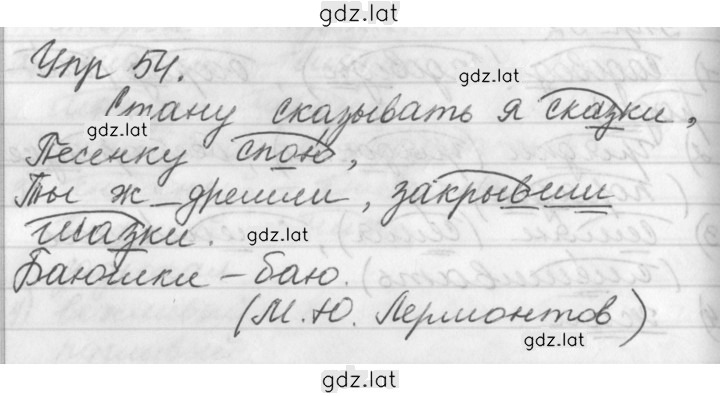 gdz.lat
Упр 54.
gdz.lat
Стану сказывать я сказки,
gdz.lat
Песенку спою,
Ты ж дремли, закрывши
глазки.
gdz.lat
Баюшки – баю.
(М.Ю. Лермонтов)
gdz.lat
gdz.lat